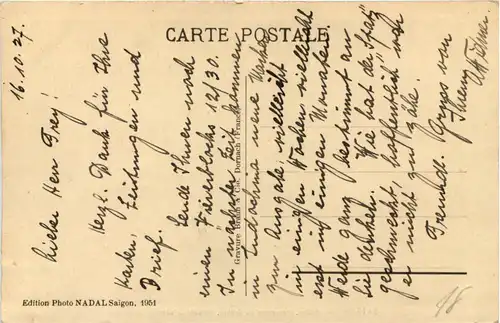 CARTE POSTALE
16.10.37.
Lieber Herr Frey!
Herzl. Dank für Ihre
Karten, Zeitungen und
Brief.
Sende Ihnen noch
einen Viererblocks 12/30.
In nächster Zeit kommen
in Indochina neue Marken
zur Ausgabe, vielleicht
in einigen Wochen vielleicht
erst in einigen Monaten.
Werde ganz bestimmt an
Sie denken. Wie hat der Spatz
geschmeckt, hoffentlich war
er nicht zu zähe.
Freundl. Gruss von
Ihrem
Gravure Braun & Cie, Dornach (France)
Edition Photo NADAL Saigon, 1951